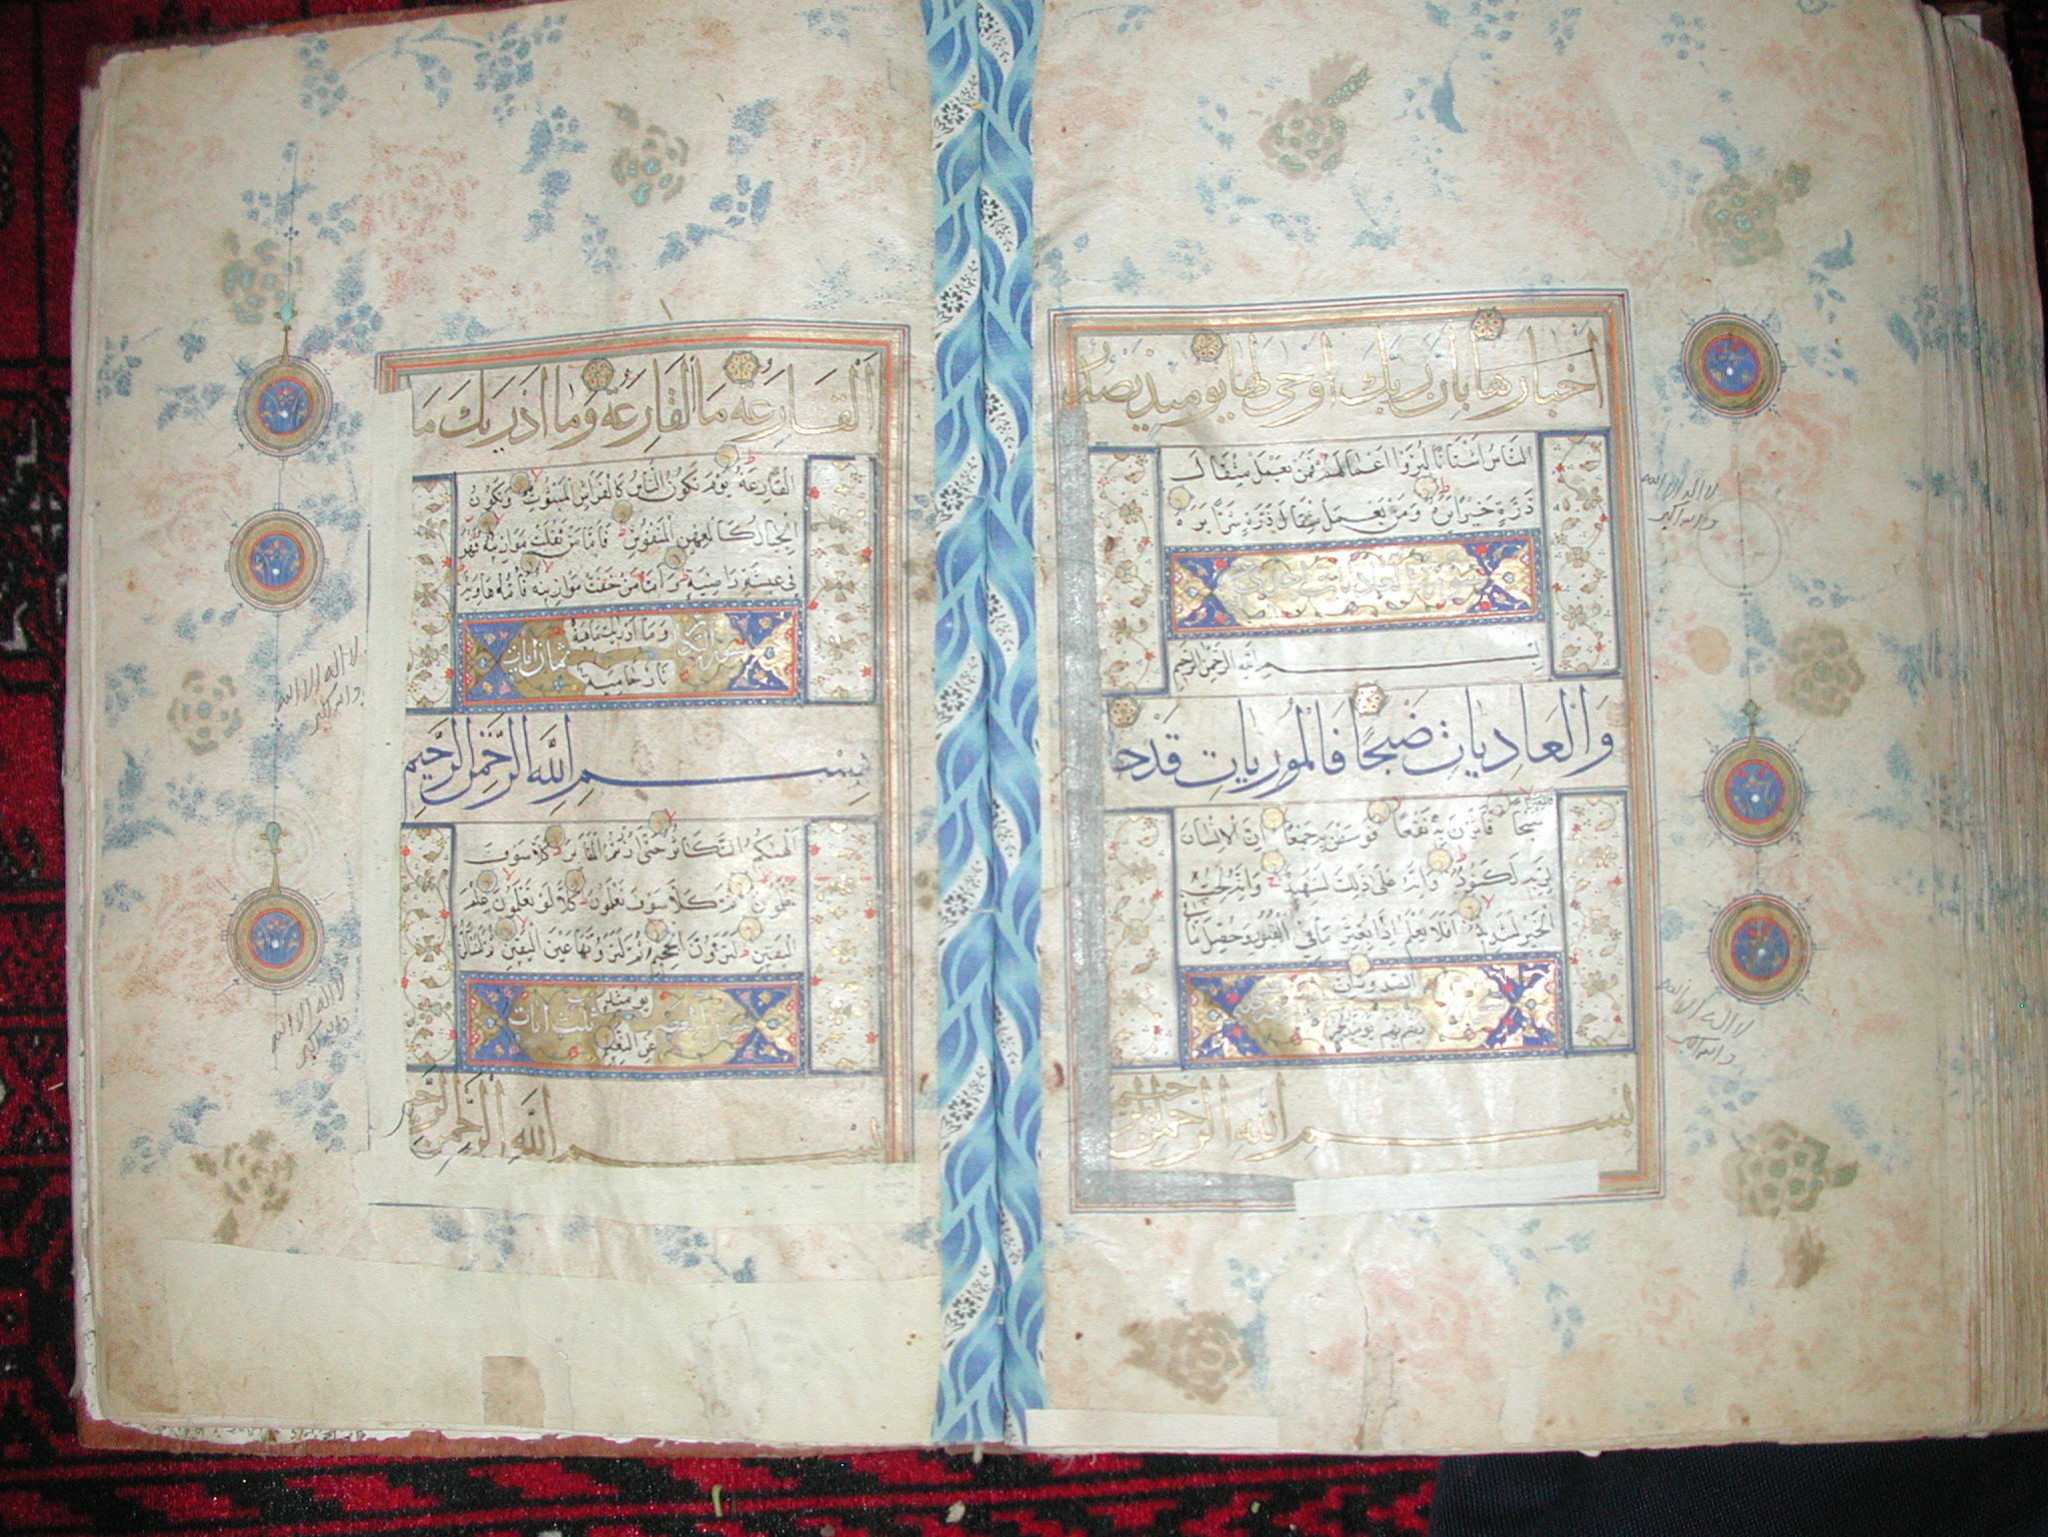 اخبارها بان ربك اوحى لها يومئذ يصدر
الناس اشتاتا ليروا اعمالهم فمن يعمل مثقال
ذرة خيرا يره ومن يعمل مثقال ذرة شرا يره
سورة العاديات احدى
بسم الله الرحمن الرحيم
والعاديات ضبحا فالموريات قدحا
فالمغيرات
صبحا فاثرن به نقعا فوسطن به جمعا ان الانسان
لربه لكنود وانه على ذلك لشهيد وانه لحب
الخير لشديد افلا يعلم اذا بعثر ما في القبور وحصل ما في
الصدور ان
ربهم بهم يومئذ لخبير
بسم الله الرحمن الرحيم
لا اله الا الله
والله اكبر
لا اله الا الله
والله اكبر
القارعة ما القارعة وما ادريك ما
القارعة يوم يكون الناس كالفراش المبثوث وتكون
الجبال كالعهن المنفوش فاما من ثقلت موازينه فهو
في عيشة راضية واما من خفت موازينه فامه هاوية
وما ادريك ماهيه
سورة التكاثر ثمان ايات
نار حامية
بسم الله الرحمن الرحيم
الهيكم التكاثر حتى زرتم المقابر كلا سوف
تعلمون ثم كلا سوف تعلمون كلا لو تعلمون علم
اليقين لترون الجحيم ثم لترونها عين اليقين ثم لتسئلن
يومئذ
سورة العصر ثلث ايات
عن النعيم
بسم الله الرحمن الرحيم
لا اله الا الله
والله اكبر
لا اله الا الله
والله اكبر